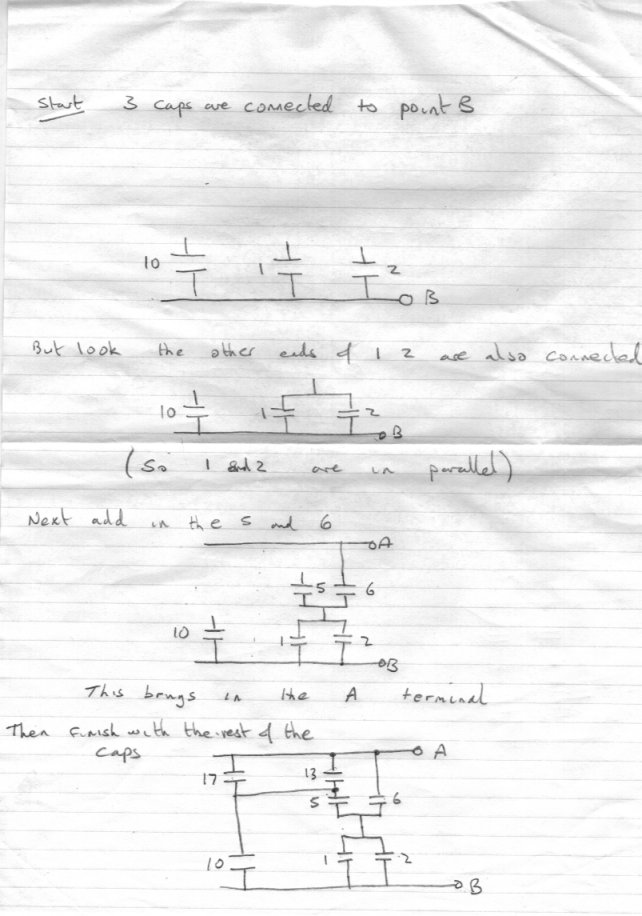 Start 3 caps are connected to point B
10 1 2
B
But look the other ends of 1 2 are also connected
10 1 2
B
(So 1 and 2 are in parallel)
Next add in the 5 and 6
A
5 6
10 1 2
B
This brings in the A terminal
Then finish with the rest of the
caps
A
17 13
5 6
10 1 2
B